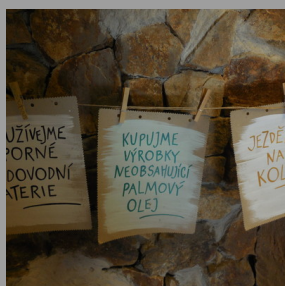 UŽÍVEJME
PORNÉ
DOVODNÍ
ATERIE
KUPUJME
VÝROBKY
NEOBSAHUJÍCÍ
PALMOVÝ
OLEJ
JEZDĚ
NA
KOL